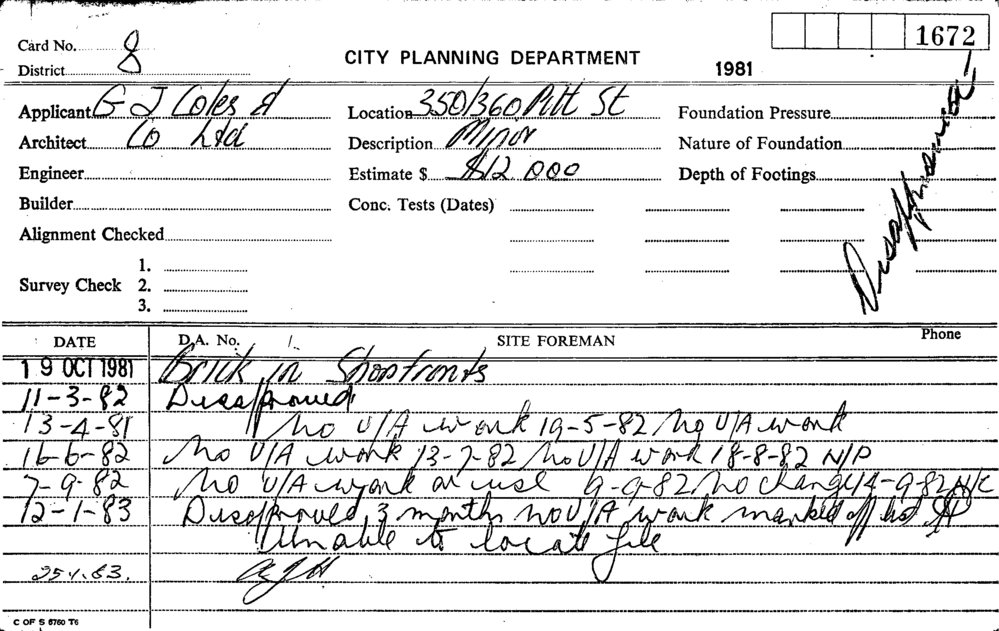 1672
Card No. 8
District
CITY PLANNING DEPARTMENT
1981
Applicant G J Coles &
Location 350/360 Pitt St
Foundation Pressure
Architect Co Ltd
Description Minor
Nature of Foundation
Engineer
Estimate $ $12 000
Depth of Footings
Builder
Conc. Tests (Dates)
Disapproved
Alignment Checked
Survey Check
1.
2.
3.
DATE
D.A. No.
SITE FOREMAN
Phone
19 OCT 1981 Brick in Shopfronts
11-3-82 Disapproved
13-4-81 No U/A work 19-5-82 No U/A work
16-6-82 No U/A work 13-7-82 No U/A work 18-8-82 N/P
7-9-82 No U/A work or use 9-9-82 No change 14-9-82 N/C
12-1-83 Disapproved 3 months no U/A work marked off list
Unable to locate file
25.1.83.
C OF S 6760 T6